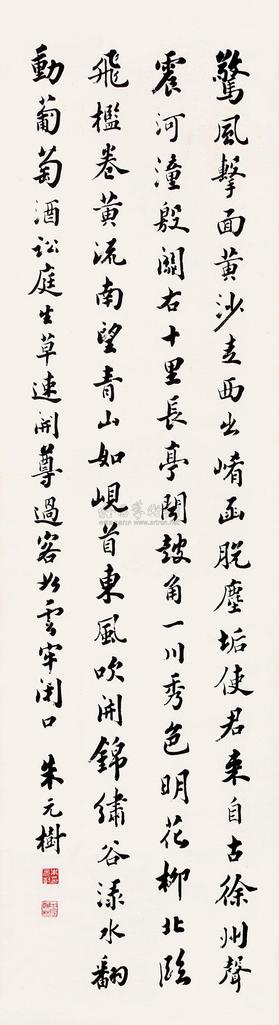 驚風擊面黃沙走西出崤函脫塵垢使君來自古徐州聲
震河潼殷關右十里長亭聞鼓角一川秀色明花柳北臨
飛檻卷黃流南望青山如峴首東風吹開錦繡谷淥水翻
動葡萄酒訟庭生草速開尊過客如雲牢閉口
朱元樹